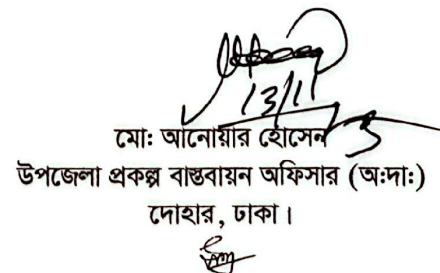 13/11
মো: আনোয়ার হোসেন
উপজেলা প্রকল্প বাস্তবায়ন অফিসার (অ:দা:)
দোহার, ঢাকা।